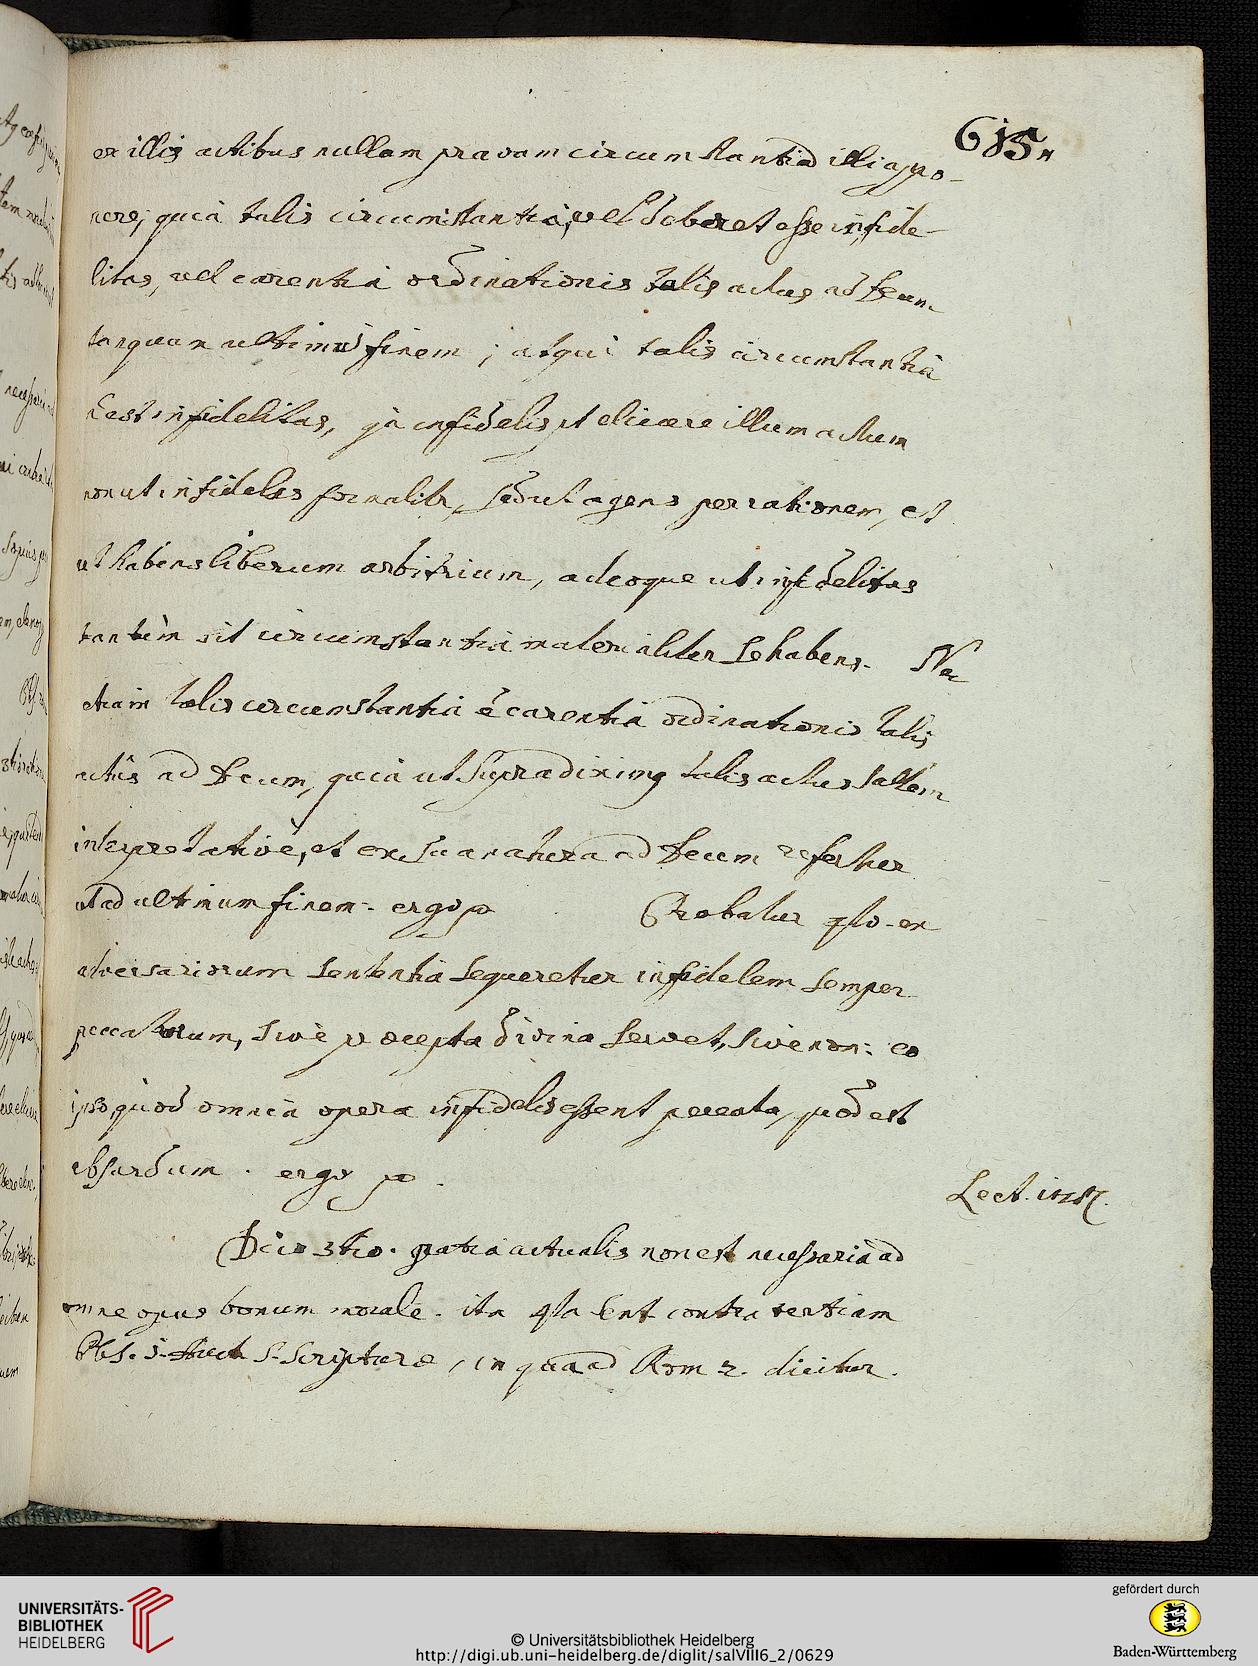 615.
ex illis actibus nullam pravam circumstantiā illi appo-
nere; quia talis circumstantia, vel deberet esse infide-
litas, vel carentia ordinationis talis actus ad Deum
tanquam ultimū finem; atqui talis circumstantia
ñ est infidelitas, infidelis pt elicere illum actum
non ut infidelis formalitr, sed ut agens per rationem, et
ut habens liberum arbitrium, adeoque ut infidelitas
tantùm sit circumstantia materialiter se habens. Nec
etiam talis circumstantia ẽ carentia ordinationis talis
actûs ad Deum, quia ut supra diximg talis actus saltem
interpretativè, et ex sua natura ad Deum refertur
ut ad ultimum finem. ergo p Probatur 4to. ex
adversariorum sententia sequeretur infidelem semper
peccaturum, sivè præcepta divina servet, sive non: eo
ipso, quod omnia opera infidelis essent peccata, quod est
absurdum. ergo p.
Lect. 117.
Dico 3tio. gratia actualis non est necessaria ad
omne opus bonum morale. ita 4ta sent. contra tertiam
Pbr. 1. Auth. S. Scripturæ, in qua ad Rom 2. dicitur.
UNIVERSITÄTS-
BIBLIOTHEK
HEIDELBERG
© Universitätsbibliothek Heidelberg
http://digi.ub.uni-heidelberg.de/diglit/salVIII6_2/0629
gefördert durch
Baden-Württemberg